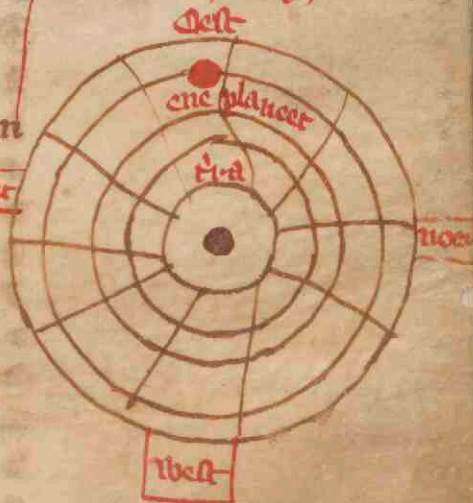 Oest
n
ene planeet
t'ra
noe
west